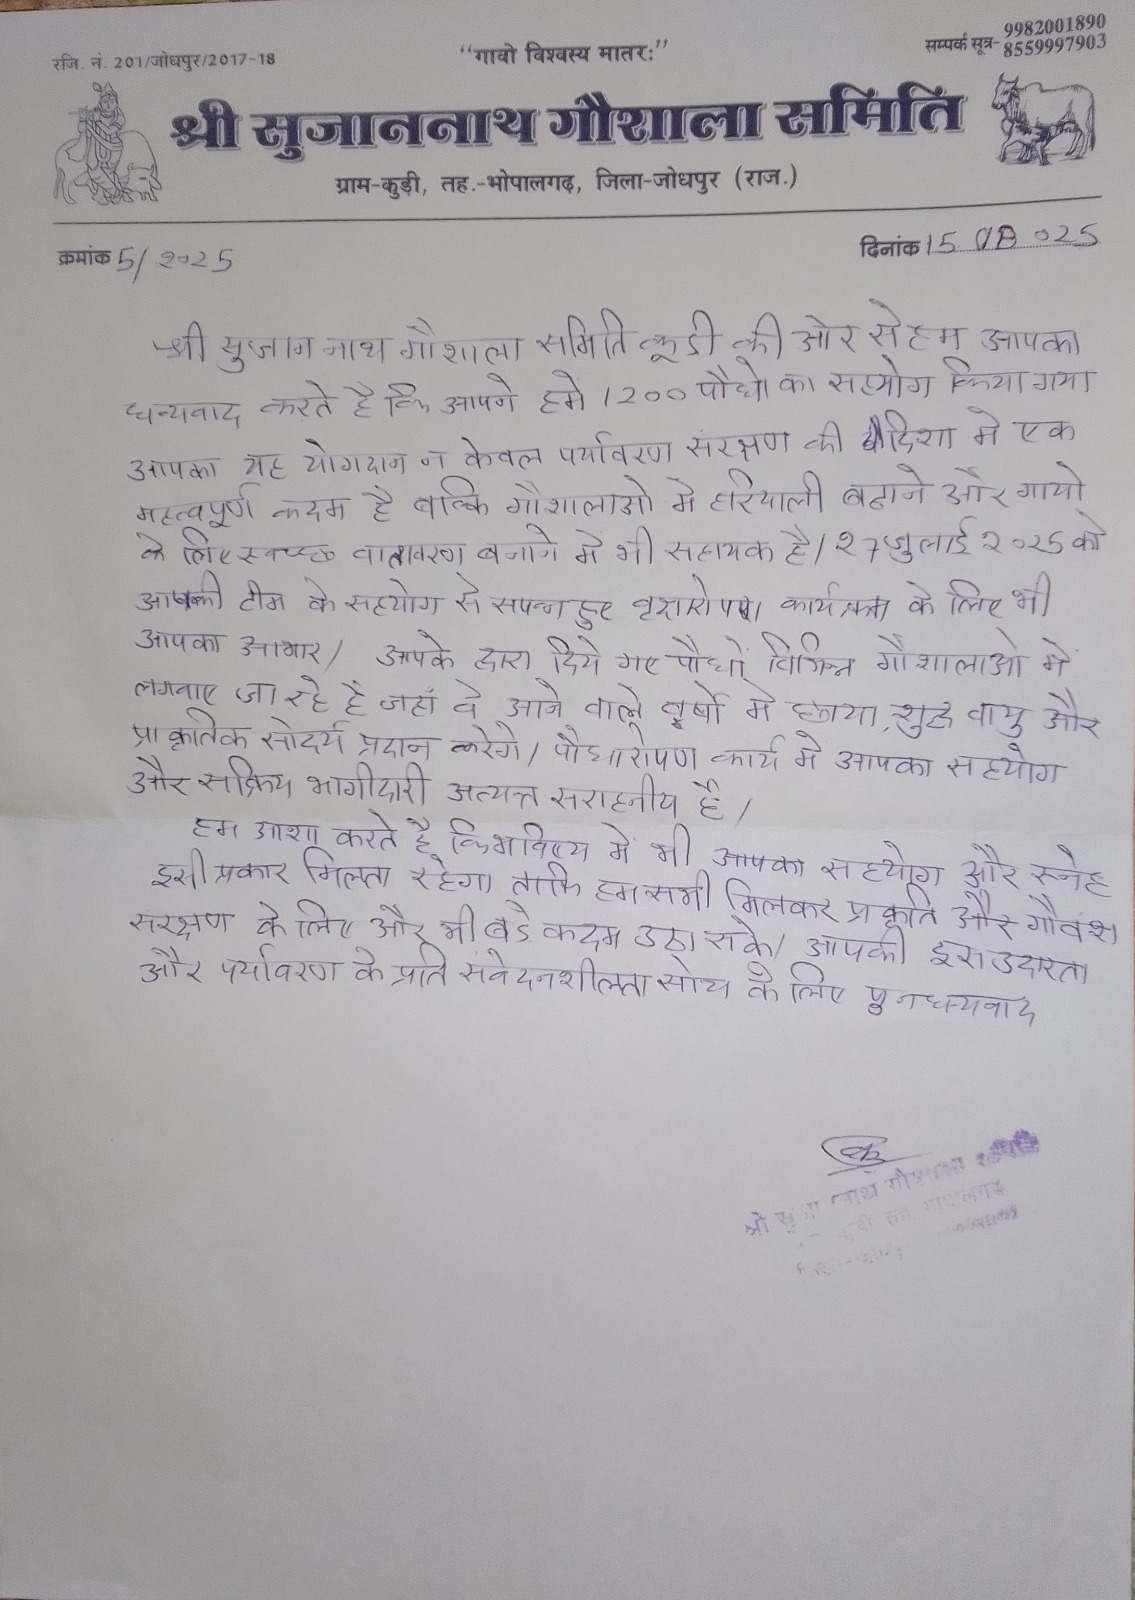 रजि. नं. 201/जोधपुर/2017-18
"गावो विश्वस्य मातरः"
सम्पर्क सूत्र- 9982001890
8559997903
श्री सुजाननाथ गौशाला समिति
ग्राम-कुड़ी, तह.-भोपालगढ़, जिला-जोधपुर (राज.)
क्रमांक 5/2025
दिनांक 15 08 025
श्री सुजान नाथ गौशाला समिति कूडी की ओर से हम आपका
धन्यवाद करते है कि आपने हमे 1200 पौधो का सहयोग किया गया
आपका यह योगदान न केवल पर्यावरण संरक्षण की दिशा मे एक
महत्वपूर्ण कदम है बल्कि गौशालाओ मे हरियाली बढाने और गायो
के लिए स्वच्छ वातावरण बनाने में भी सहायक है। 27 जुलाई 2025 को
आपकी टीम के सहयोग से सपन्न हुए वृक्षारोपण कार्यक्रम के लिए भी
आपका आभार। आपके द्वारा दिये गए पौधों विभिन्न गौशालाओ में
लगवाए जा रहे है जहाँ वे आने वाले वर्षो मे छाया, शुद्ध वायु और
प्राकृतिक सोदर्य प्रदान करेगे। पौधारोपण कार्य मे आपका सहयोग
और सक्रिय भागीदारी अत्यन्त सराहनीय है।
हम आशा करते है कि भविष्य में भी आपका सहयोग और स्नेह
इसी प्रकार मिलता रहेगा ताकि हम सभी मिलकर प्रकृति और गौवंश
सरक्षण के लिए और भी बडे कदम उठा सके। आपकी इस उदारता
और पर्यावरण के प्रति संवेदनशीलता सोच के लिए पुन धन्यवाद
श्री नाथ